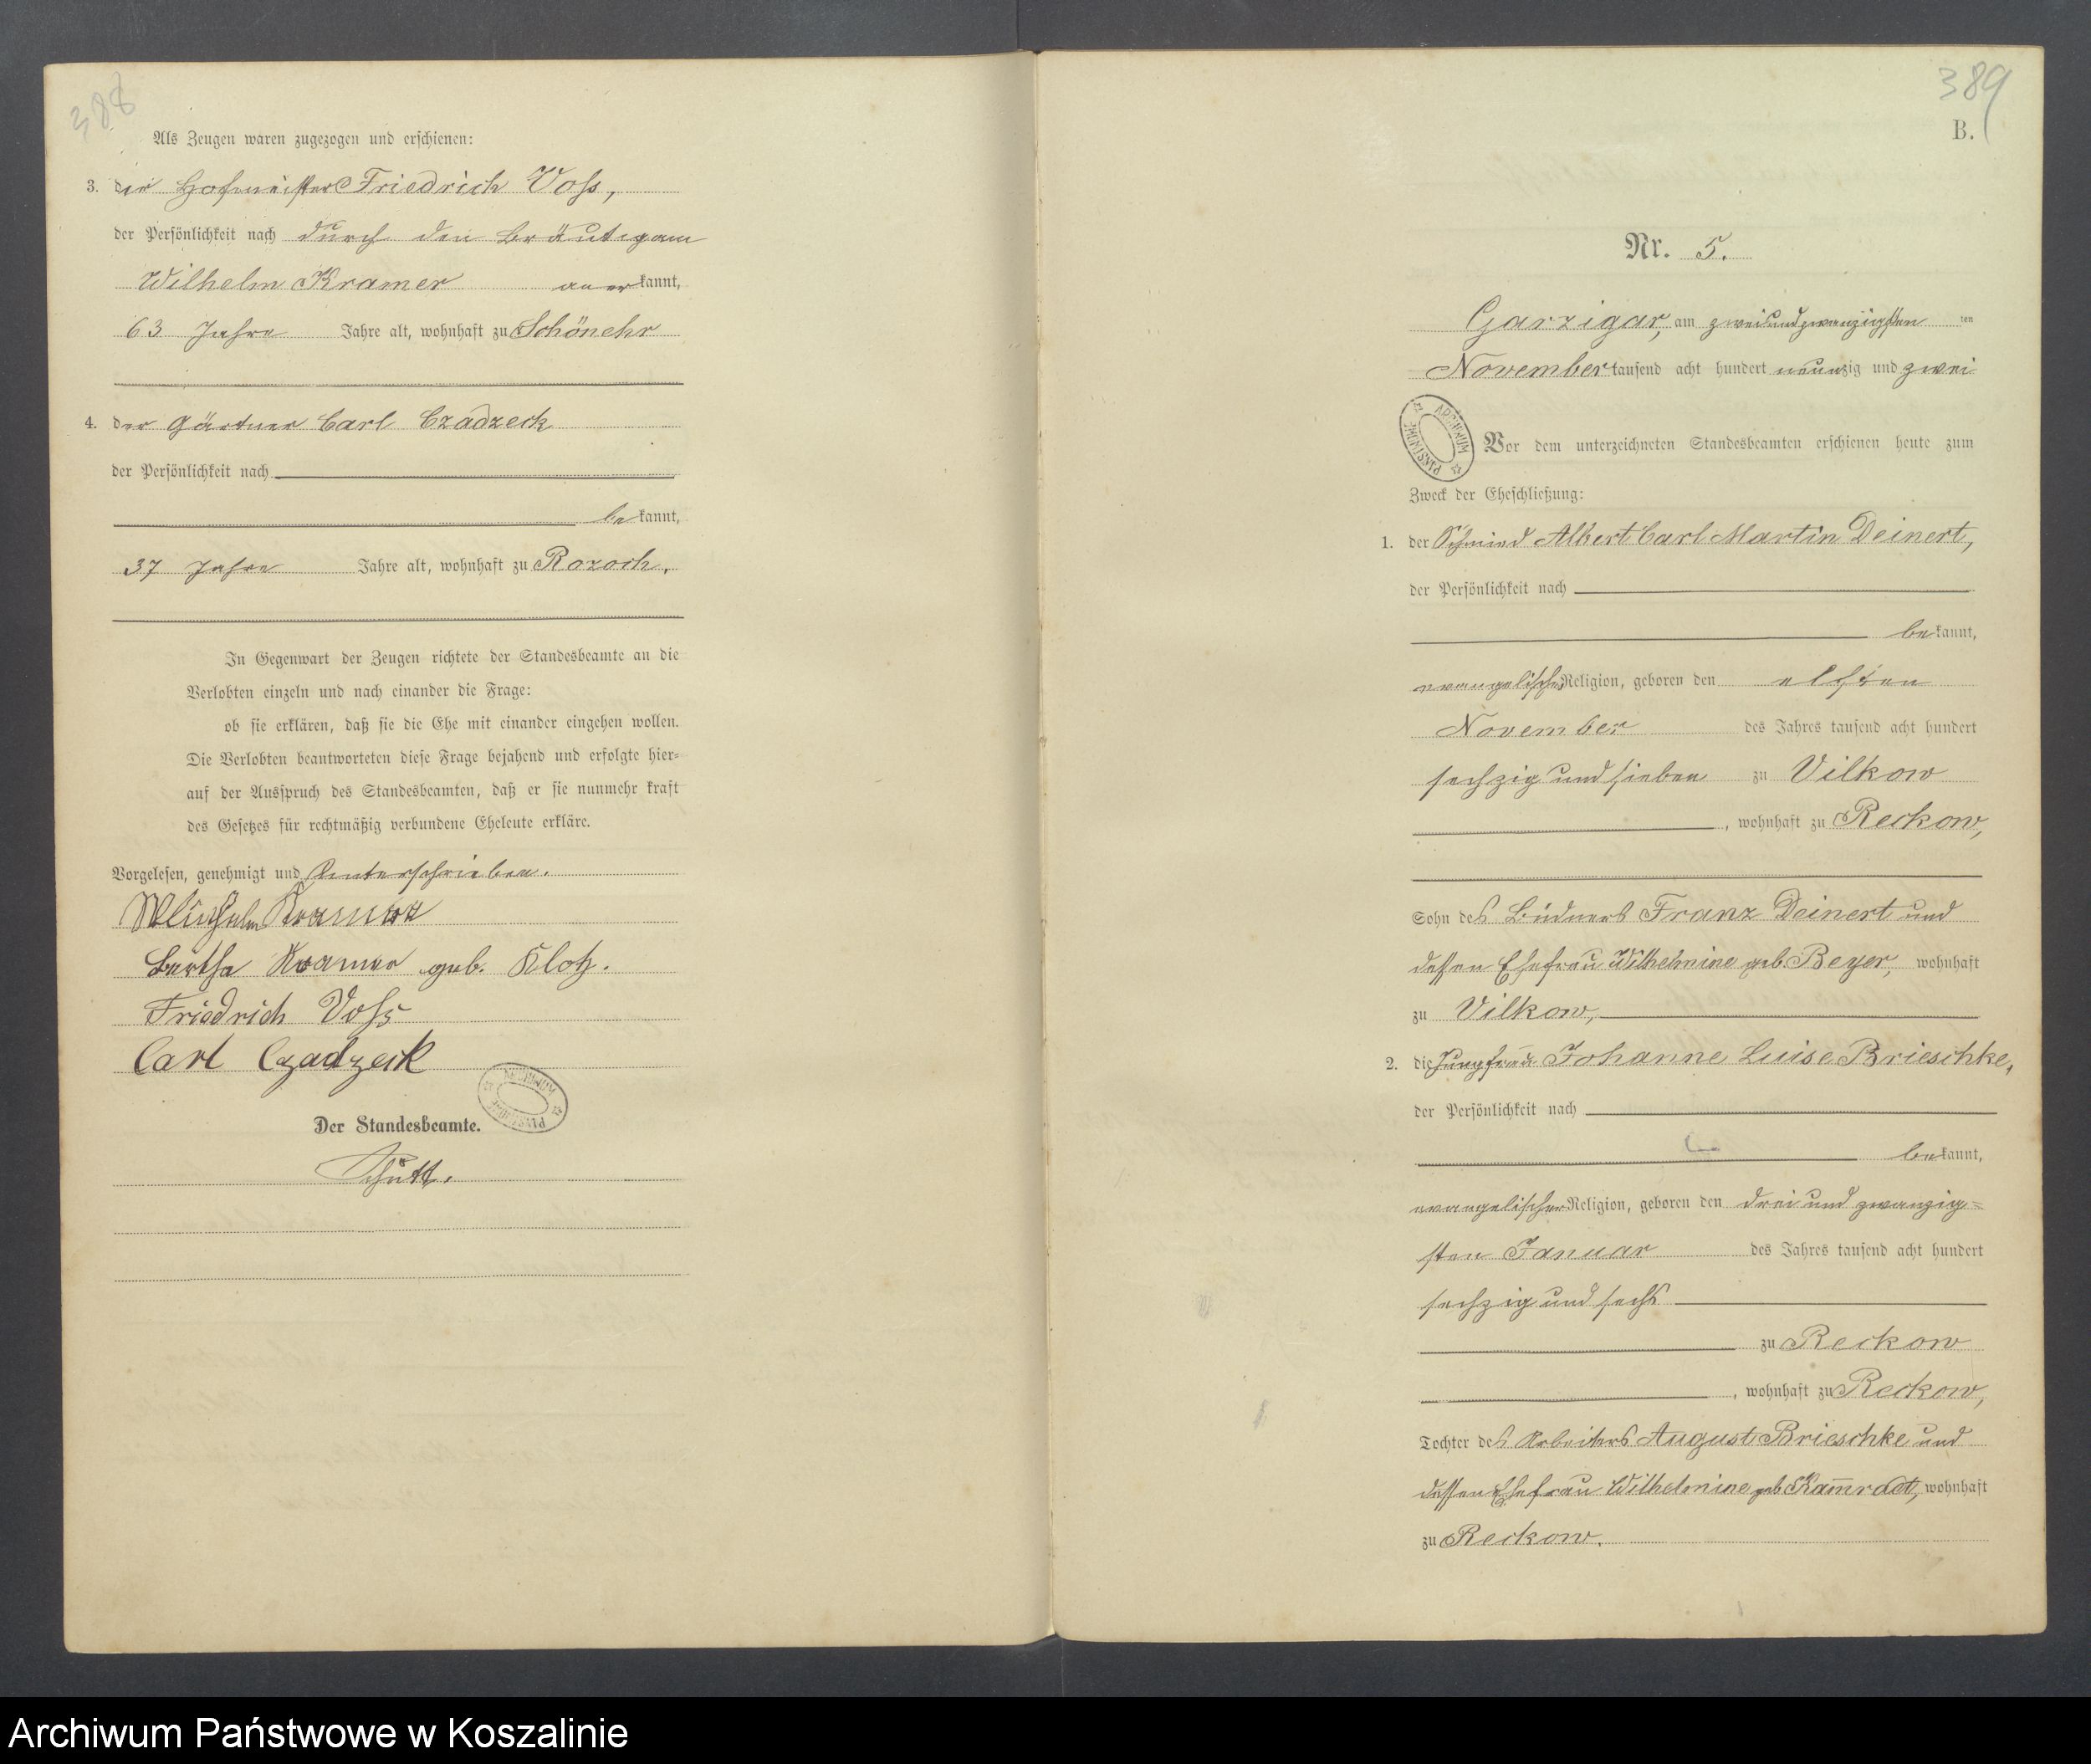 388
Als Zeugen waren zugezogen und erschienen:
3. der Hofmeister Friedrich Voss,
der Persönlichkeit nach durch den Bräutigam
Wilhelm Kramer anerkannt,
63 Jahre Jahre alt, wohnhaft zu Schönehr
4. der Gärtner Carl Czadzeck
der Persönlichkeit nach
bekannt,
37 Jahre Jahre alt, wohnhaft zu Rozoch.
In Gegenwart der Zeugen richtete der Standesbeamte an die
Verlobten einzeln und nach einander die Frage:
ob sie erklären, daß sie die Ehe mit einander eingehen wollen.
Die Verlobten beantworteten diese Frage bejahend und erfolgte hier-
auf der Ausspruch des Standesbeamten, daß er sie nunmehr kraft
des Gesetzes für rechtmäßig verbundene Eheleute erkläre.
Vorgelesen, genehmigt und Unterschrieben.
Wilhelm Kramer
Bertha Kramer geb. Klotz.
Friedrich Voss
Carl Czadzeck
ARCHIWUM PAŃSTWOWE
Der Standesbeamte.
Schütt.
389
B.
Nr. 5.
Garzigar, am zweiundzwanzigsten ten
November tausend acht hundert neunzig und zwei
ARCHIWUM PAŃSTWOWE
Vor dem unterzeichneten Standesbeamten erschienen heute zum
Zweck der Eheschließung:
1. der Schmied Albert Carl Martin Deinert,
der Persönlichkeit nach
bekannt,
evangelischer Religion, geboren den elften
November des Jahres tausend acht hundert
sechzig und sieben zu Vilkow
, wohnhaft zu Reckow,
Sohn des Büdners Franz Deinert und
dessen Ehefrau Wilhelmine geb. Beyer, wohnhaft
zu Vilkow,
2. die Jungfrau Johanne Luise Brieschke,
der Persönlichkeit nach
bekannt,
evangelischer Religion, geboren den drei und zwanzig=
sten Januar des Jahres tausend acht hundert
sechzig und sechs
zu Reckow
, wohnhaft zu Reckow,
Tochter des Arbeiters August Brieschke und
dessen Ehefrau Wilhelmine geb. Kam̄radt, wohnhaft
zu Reckow.
Archiwum Państwowe w Koszalinie